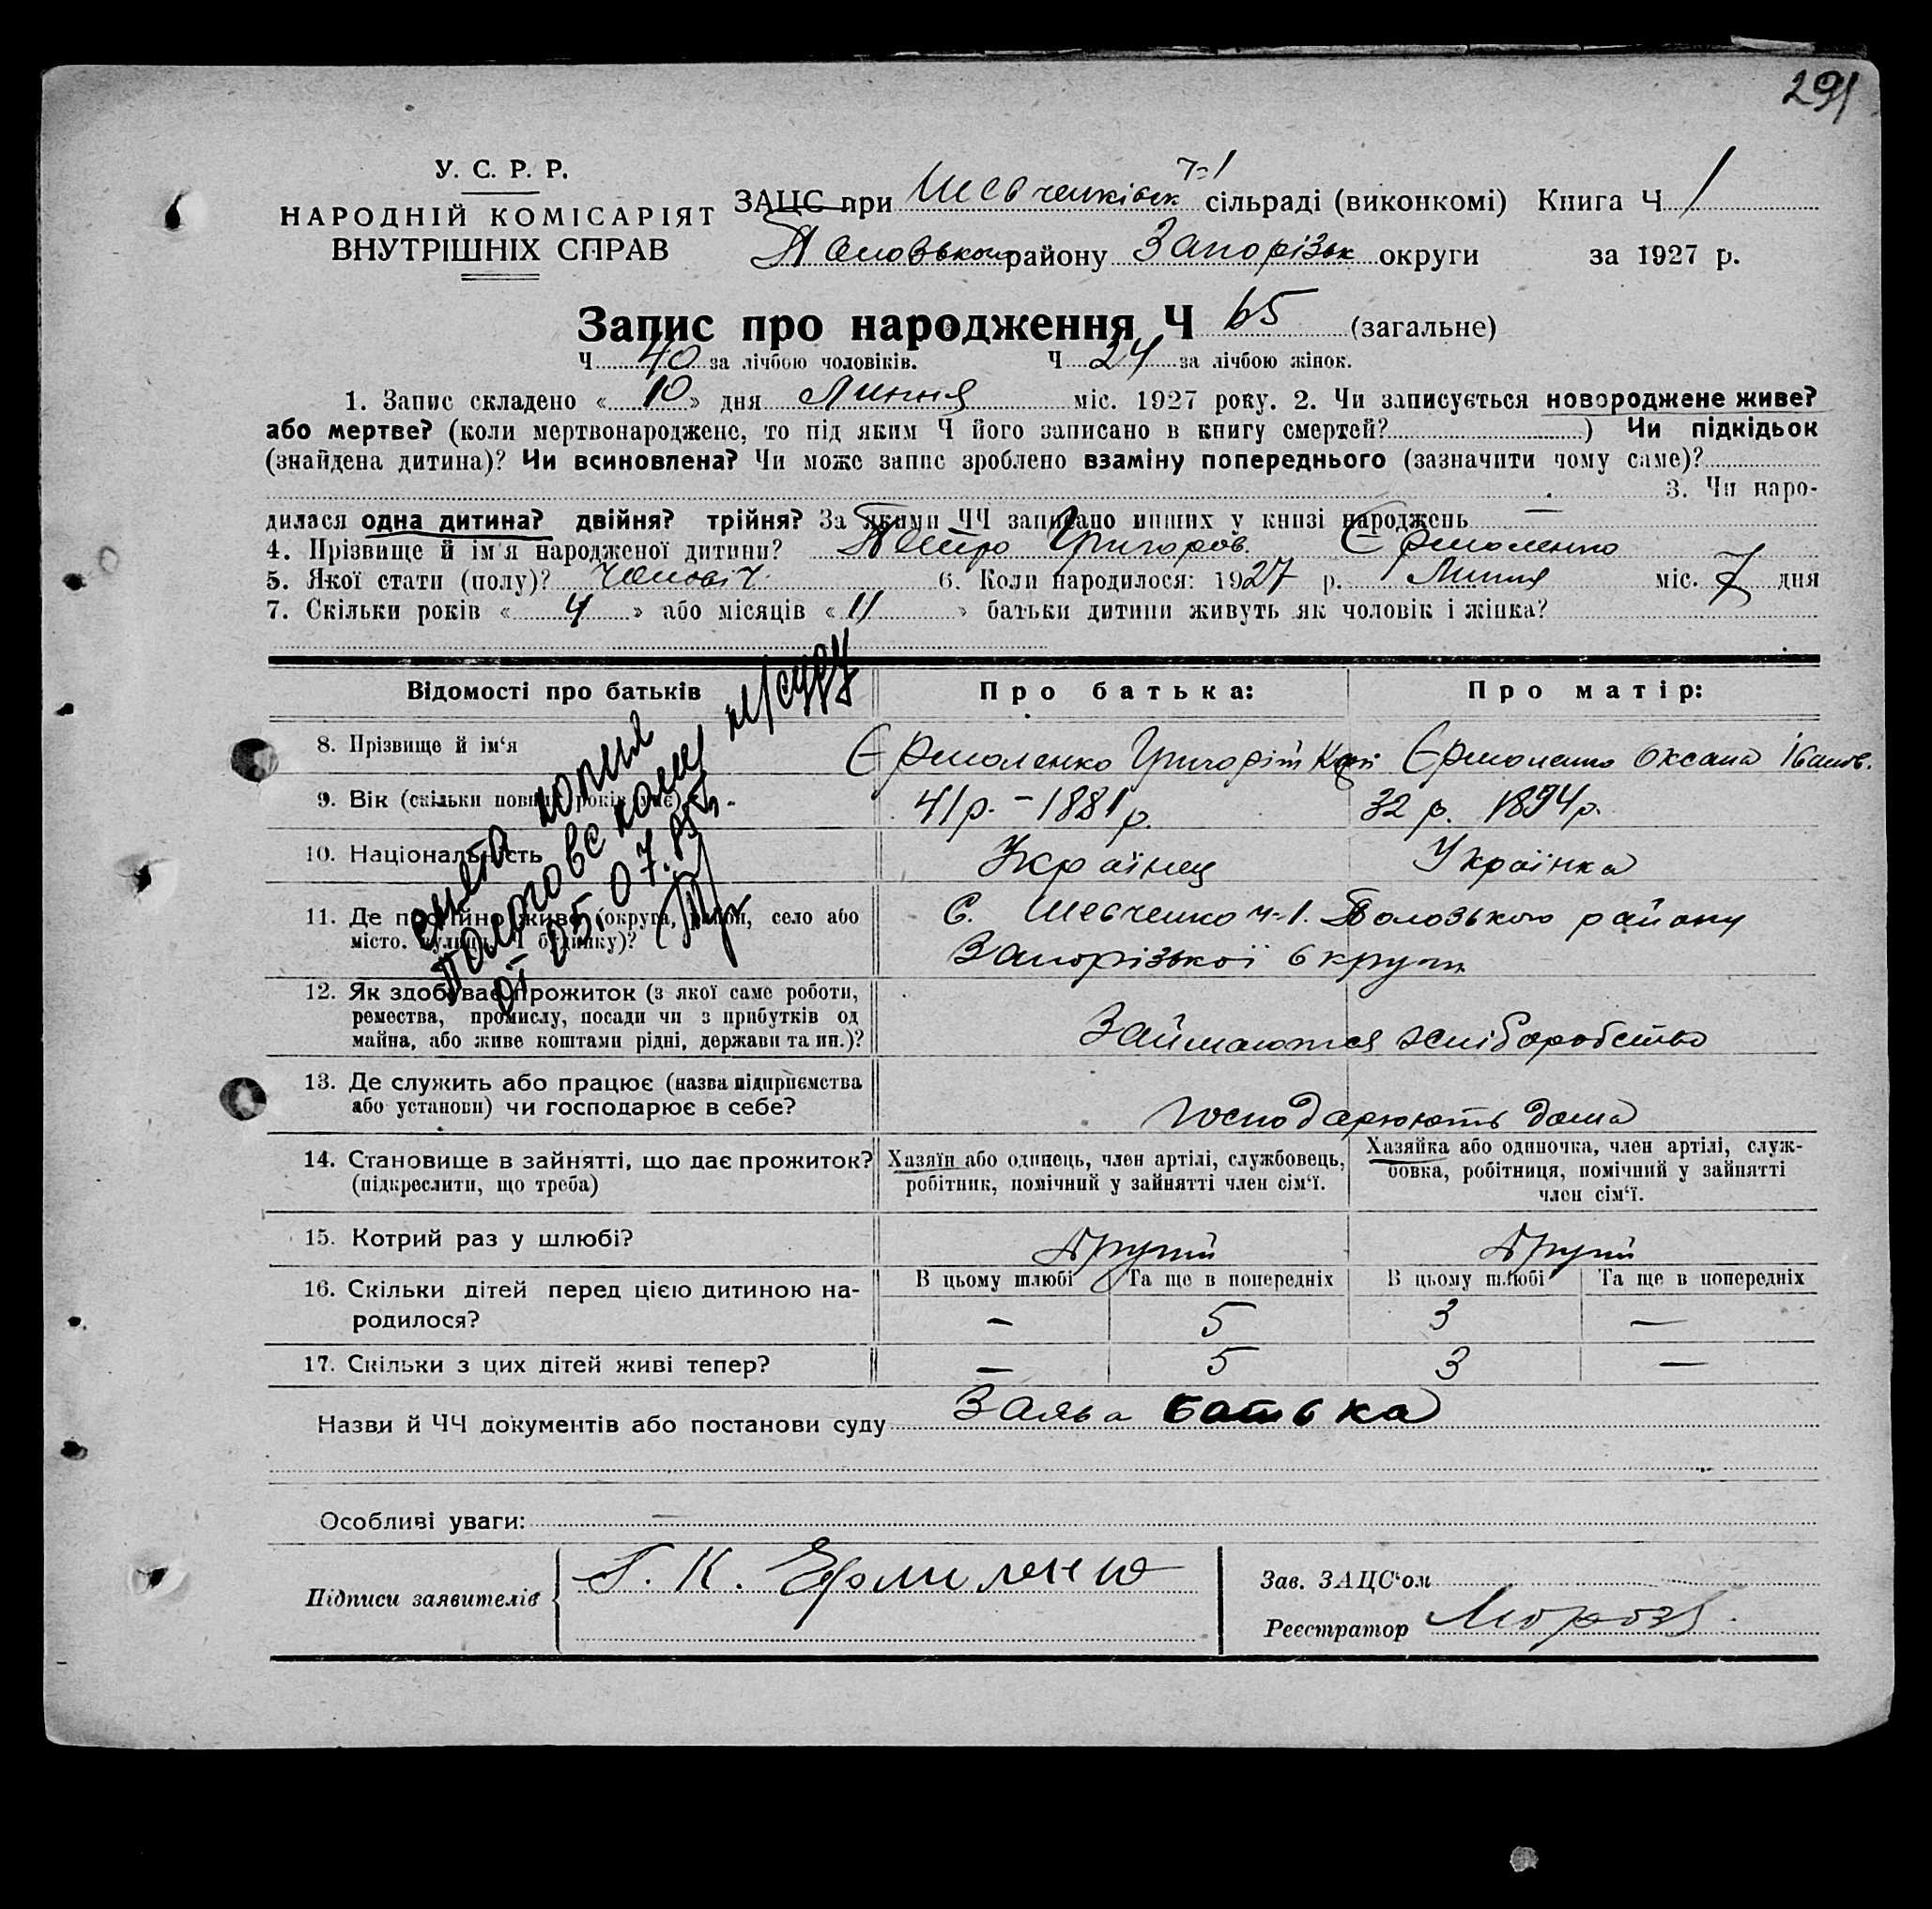 291
У. С. Р. Р.
НАРОДНІЙ КОМІСАРІЯТ
ВНУТРІШНІХ СПРАВ
ЗАЦС при Шевченківск ч-1 сільраді (виконкомі) Книга Ч 1
району Запорізьк округи за 1927 р.
Запис про народження Ч 65 (загальне)
Ч 40 за лічбою чоловіків. Ч 24 за лічбою жінок.
1. Запис складено « 10 » дня Липня міс. 1927 року. 2. Чи записується новороджене живе?
або мертве? (коли мертвонароджене, то під яким Ч його записано в книгу смертей? ) Чи підкідьок
(знайдена дитина)? Чи всиновлена? Чи може запис зроблено взаміну попереднього (зазначити чому саме)?
3. Чи наро-
дилася одна дитина? двійня? трійня? За якими ЧЧ записано инших у книзі народжень —
4. Прізвище й ім'я народженої дитини? Петро Григоров. Єрмоленко
5. Якої стати (полу)? Чоловіч. 6. Коли народилося: 1927 р. Липня міс. 7 дня
7. Скільки років « 4 » або місяців « 11 » батьки дитини живуть як чоловік і жінка?
Відомості про батьків Про батька: Про матір:
8. Прізвище й ім'я Єрмоленко Григорій Єрмоленко Оксана Іванов.
9. Вік (скільки повних років має) 41 р. – 1881 р. 32 р. 1894 р.
10. Національність Українец Українка
11. Де постійно живе (округа, район, село або
місто, вулиця, Ч будинку)?
С. Шевченко ч-1. Полозького району
Запорізької округи
12. Як здобуває прожиток (з якої саме роботи,
ремества, промислу, посади чи з прибутків од
майна, або живе коштами рідні, держави та ин.)?
Займаются хліборобство
13. Де служить або працює (назва підприємства
або установи) чи господарює в себе?
господарюють дома
14. Становище в зайнятті, що дає прожиток?
(підкреслити, що треба)
Хазяїн або одинець, член артілі, службовець,
робітник, помічний у зайнятті член сім'ї.
Хазяйка або одиночка, член артілі, служ-
бовка, робітниця, помічний у зайнятті
член сім'ї.
15. Котрий раз у шлюбі? Другий Другий
В цьому шлюбі Та ще в попередніх В цьому шлюбі Та ще в попередніх
16. Скільки дітей перед цією дитиною на-
родилося?
— 5 3 —
17. Скільки з цих дітей живі тепер? — 5 3 —
копия
Пологовскому н/суду
от 05.07.
Назви й ЧЧ документів або постанови суду Заява батька
Особливі уваги: —
Підписи заявителів Г. К. Ермиленко
Зав. ЗАЦС'ом
Реєстратор Мороз